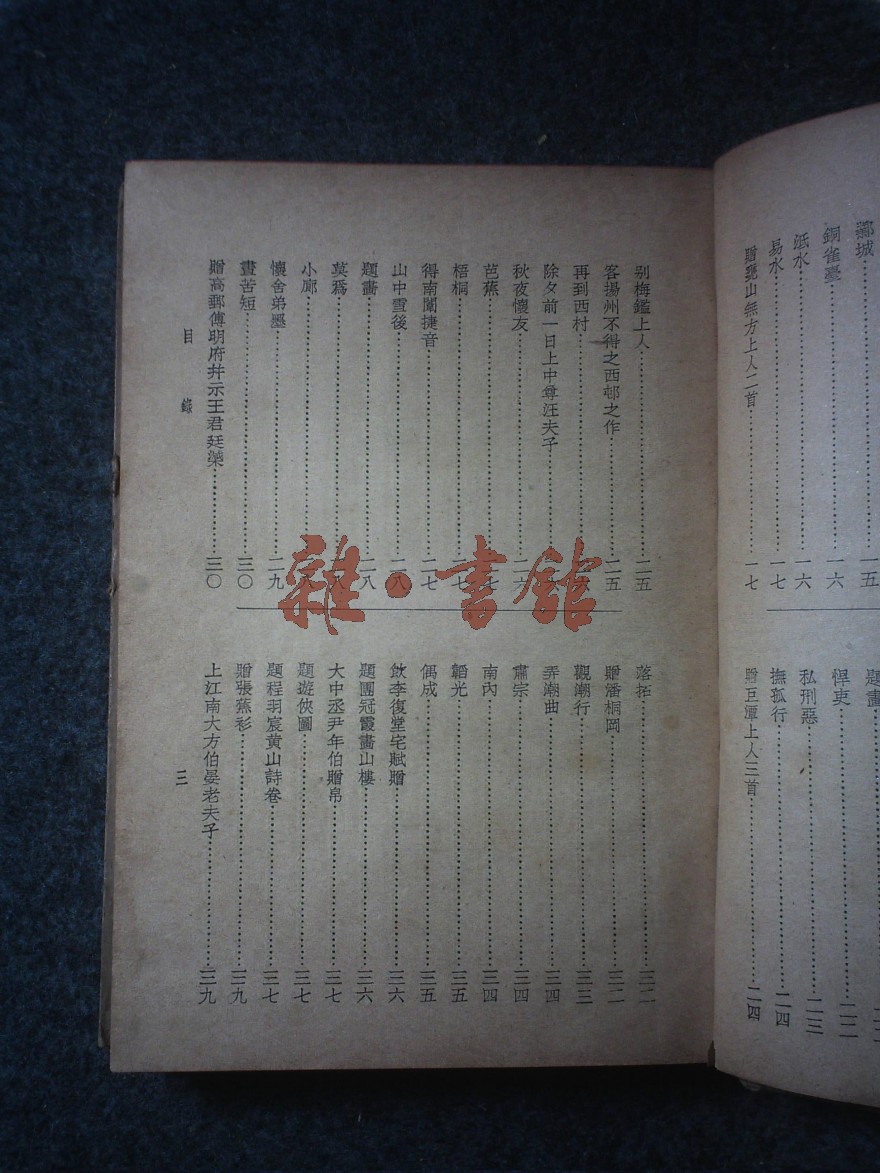 鄴城……一五
銅雀臺……一六
泜水……一六
易水……一七
贈甕山無方上人二首……一七
題畫
悍吏……二二
私刑惡……二三
撫孤行……二四
贈巨潭上人三首……二四
别梅鑑上人……二五
客揚州不得之西邨之作……二五
再到西村
除夕前一日上中尊汪夫子
秋夜懷友……二六
芭蕉
梧桐
得南闈捷音……二七
山中雪後……二八
題畫……二八
莫爲
小廊
懷舍弟墨……二九
晝苦短……三〇
贈高郵傅明府幷示王君廷㵾……三〇
目錄
落拓……三二
贈潘桐岡……三二
觀潮行……三三
弄潮曲……三四
肅宗……三四
南內……三四
韜光……三五
偶成……三五
飲李復堂宅賦贈……三六
題團冠霞畫山樓……三六
大中丞尹年伯贈帛……三七
題遊俠圖……三七
題程羽宸黃山詩卷……三七
贈張蕉衫……三九
上江南大方伯晏老夫子……三九
三
雜·書館